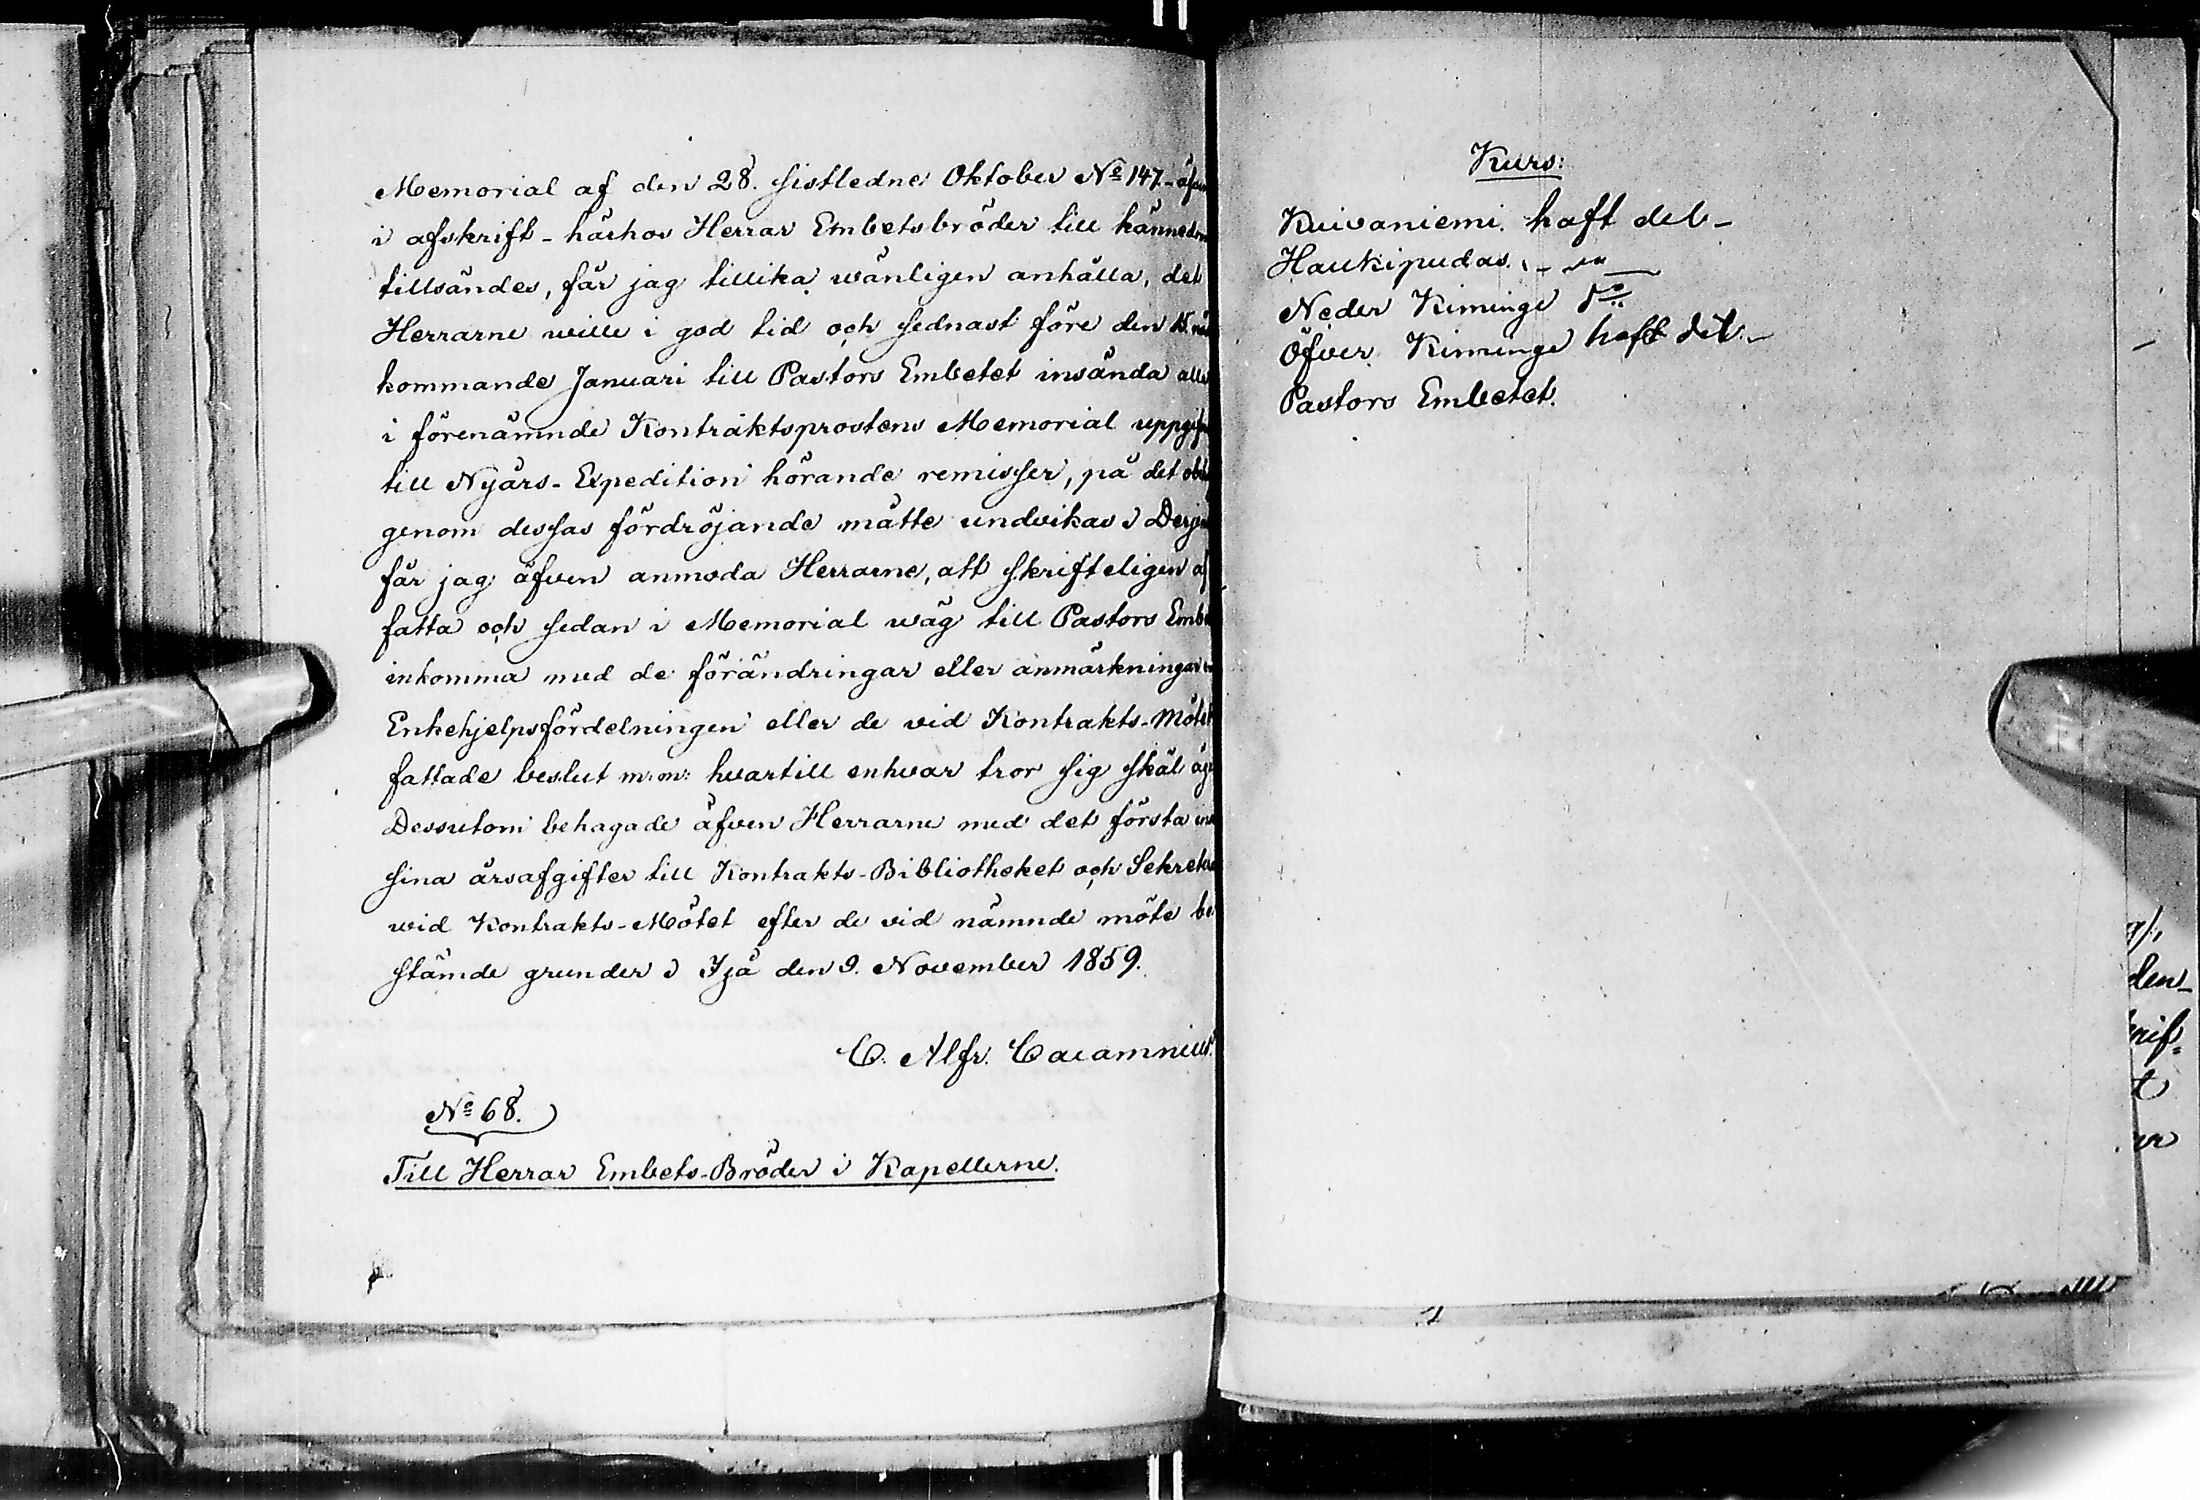 Memorial af den 28. sistledne Oktober No 147 - äfven
i afskrift - härhos Herrar Embetsbröder till kännedom
tillsändes, får jag tillika wänligen anhålla, det
Herrarne wille i god tid och sednast före den 15.
kommande Januari till Pastors Embetet insända alla
i förenämnde Kontraktsprostens Memorial
till Nyårs-Expedition hörande remisser, på det
genom dessas fördröjande måtte undvikas
får jag äfven anmoda Herrarne, att skrifteligen af
fatta och sedan i Memorial wäg till Pastors
inkomma med de förändringar eller anmärkningar
Enkehjelpsfördelningen eller de vid Kontrakts-Mötet
fattade beslut m: m: hvartill enhvar tror sig skäl
Dessutom behagade äfven Herrarne med det första
sina årsafgifter till Kontrakts-Bibliotheket och
wid Kontrakts-Mötet efter de vid nämnde möte be
stämde grunder Ijå den 9. November 1859.
C. Alfr.
No 68.
Till Herrar Embets-Bröder i Kapellerne.
Kurs:
Kuivaniemi. haft del -
Haukipudas. - " -
Neder Kiminge do
Öfver Kiminge haft del. -
Pastors Embetet.